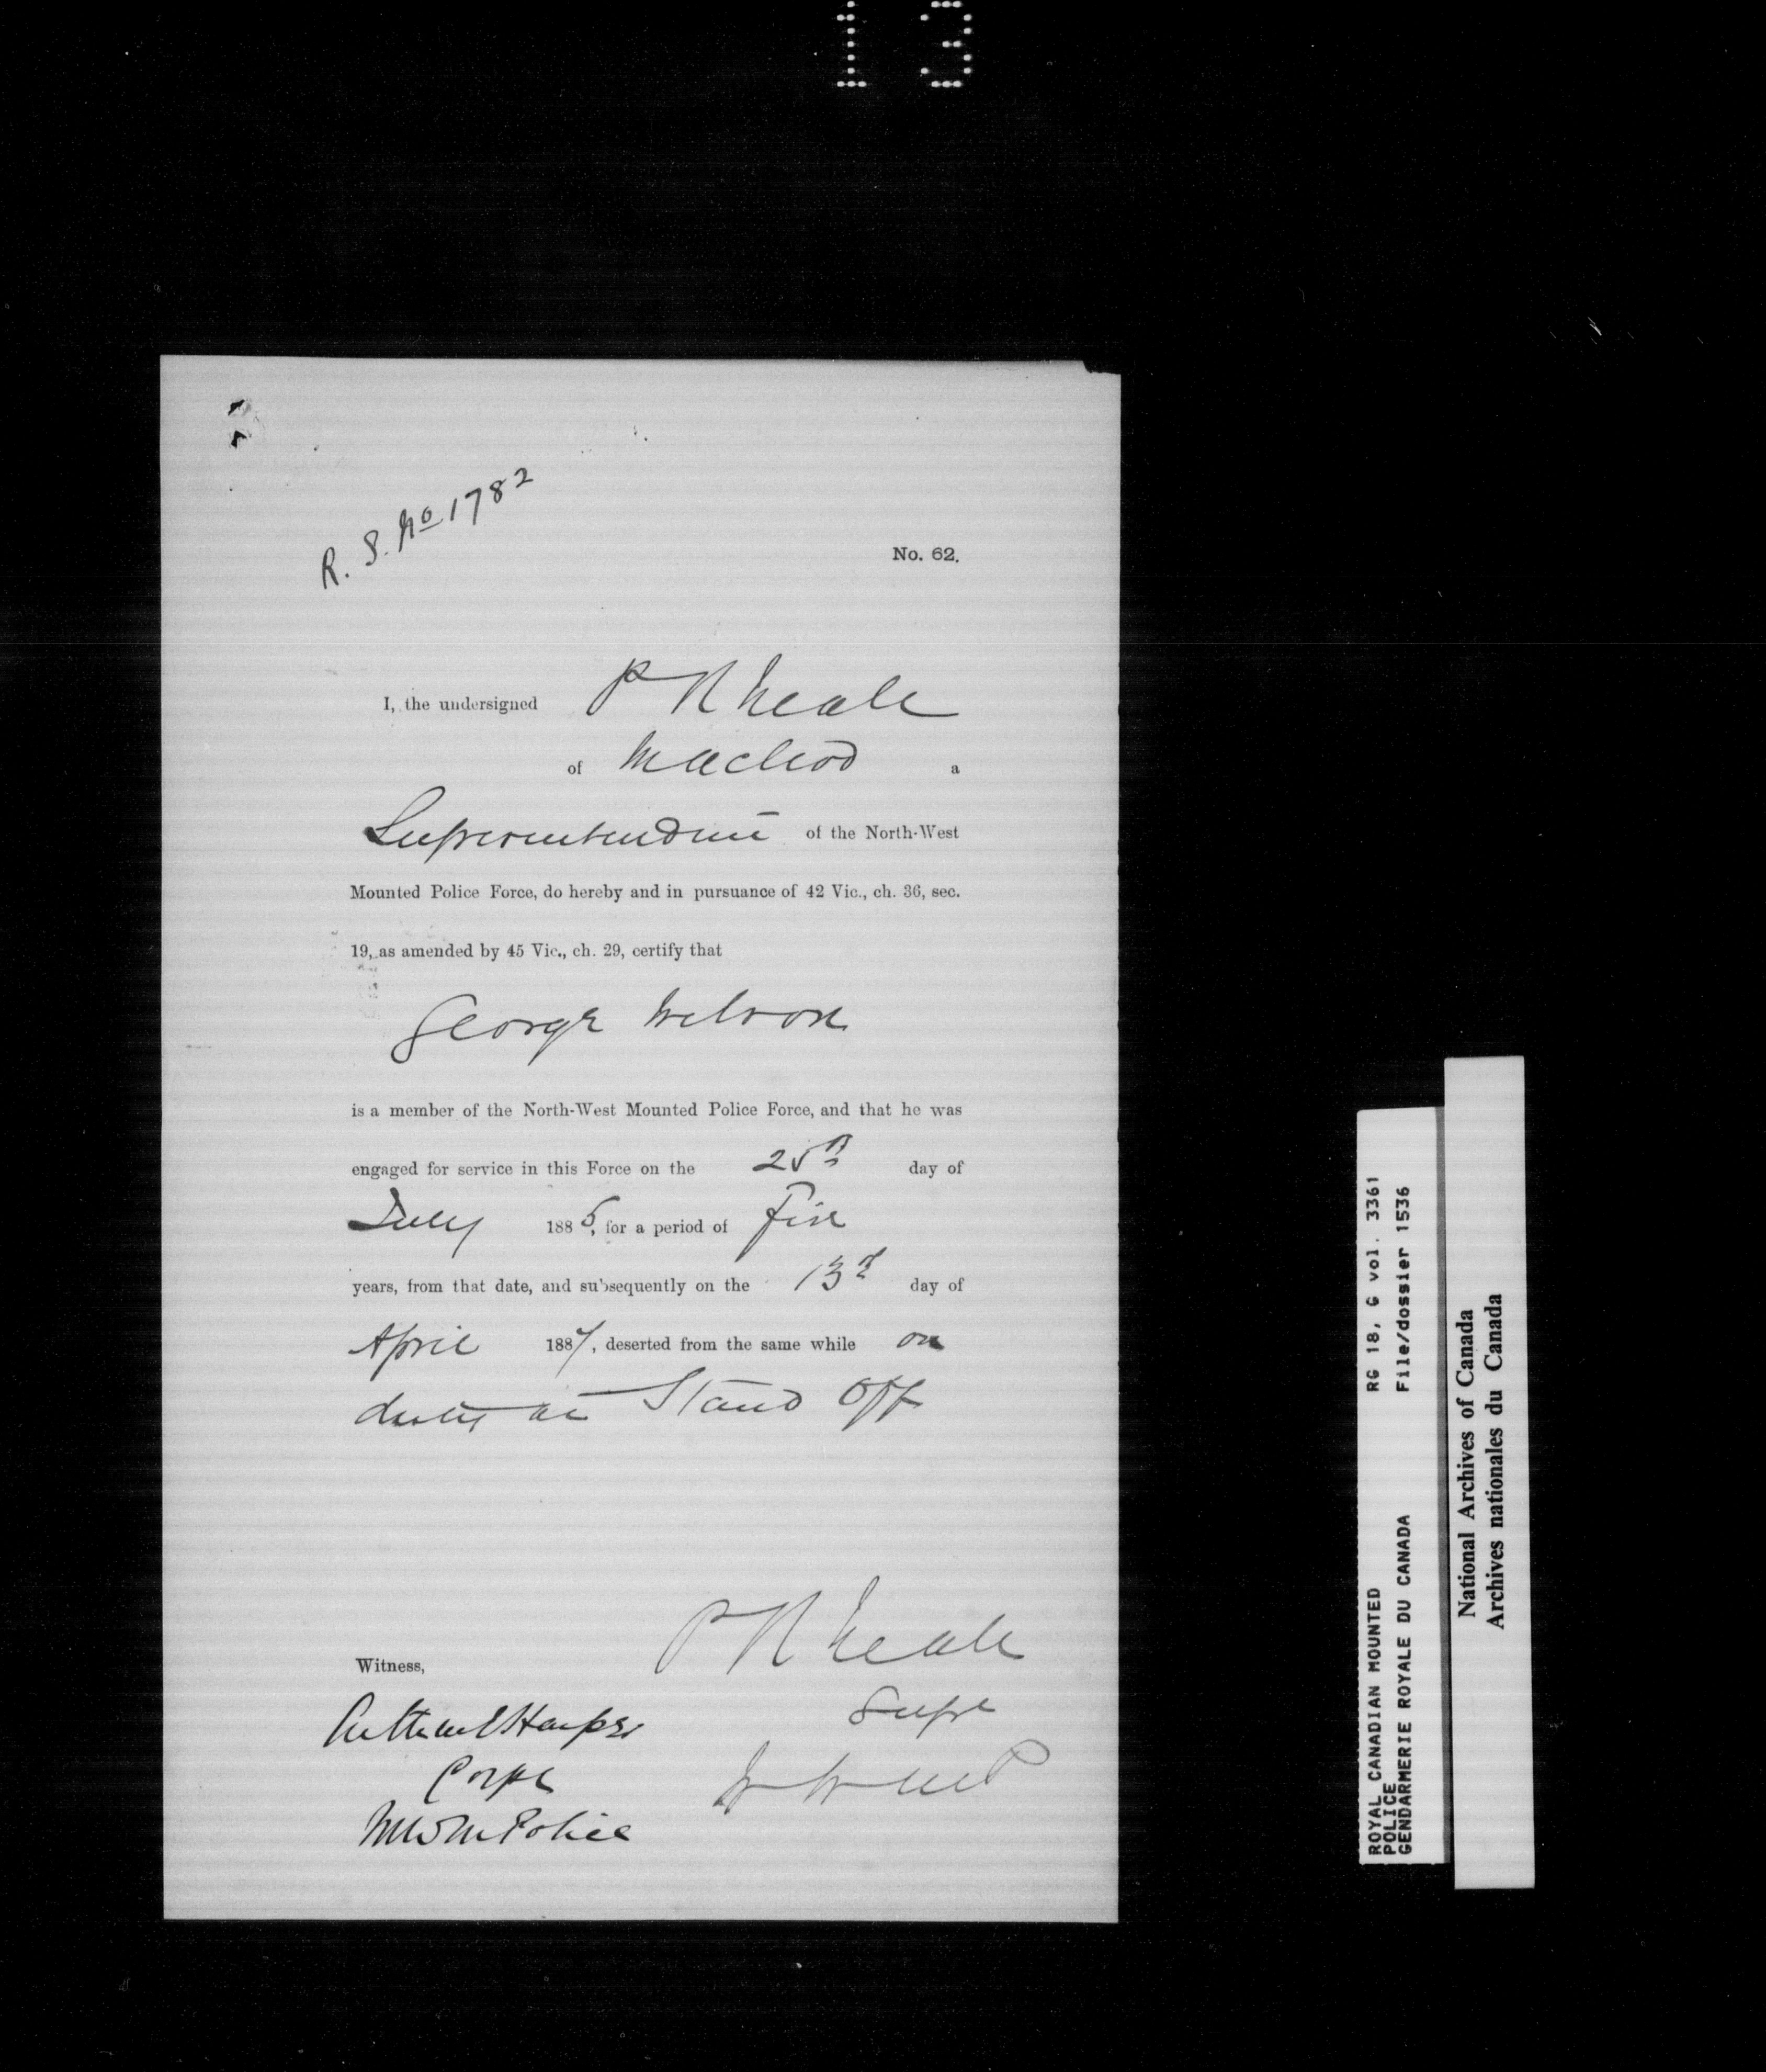 13
R. S. No 1782
No. 62.
I, the undersigned P R Neale
of Macleod a
Superintendent of the North-West
Mounted Police Force, do hereby and in pursuance of 42 Vic., ch. 36, sec.
19, as amended by 45 Vic., ch. 29, certify that
George Wilson
is a member of the North-West Mounted Police Force, and that he was
engaged for service in this Force on the 25th day of
July 1885, for a period of five
years, from that date, and subsequently on the 13th day of
April 1887, deserted from the same while on
duty at Stand Off
P R Neale
Witness,
Supt
Corpl
N W M P
NWM Police
RG 18, G vol. 3361
File/dossier 1536
ROYAL CANADIAN MOUNTED
POLICE
GENDARMERIE ROYALE DU CANADA
National Archives of Canada
Archives nationales du Canada